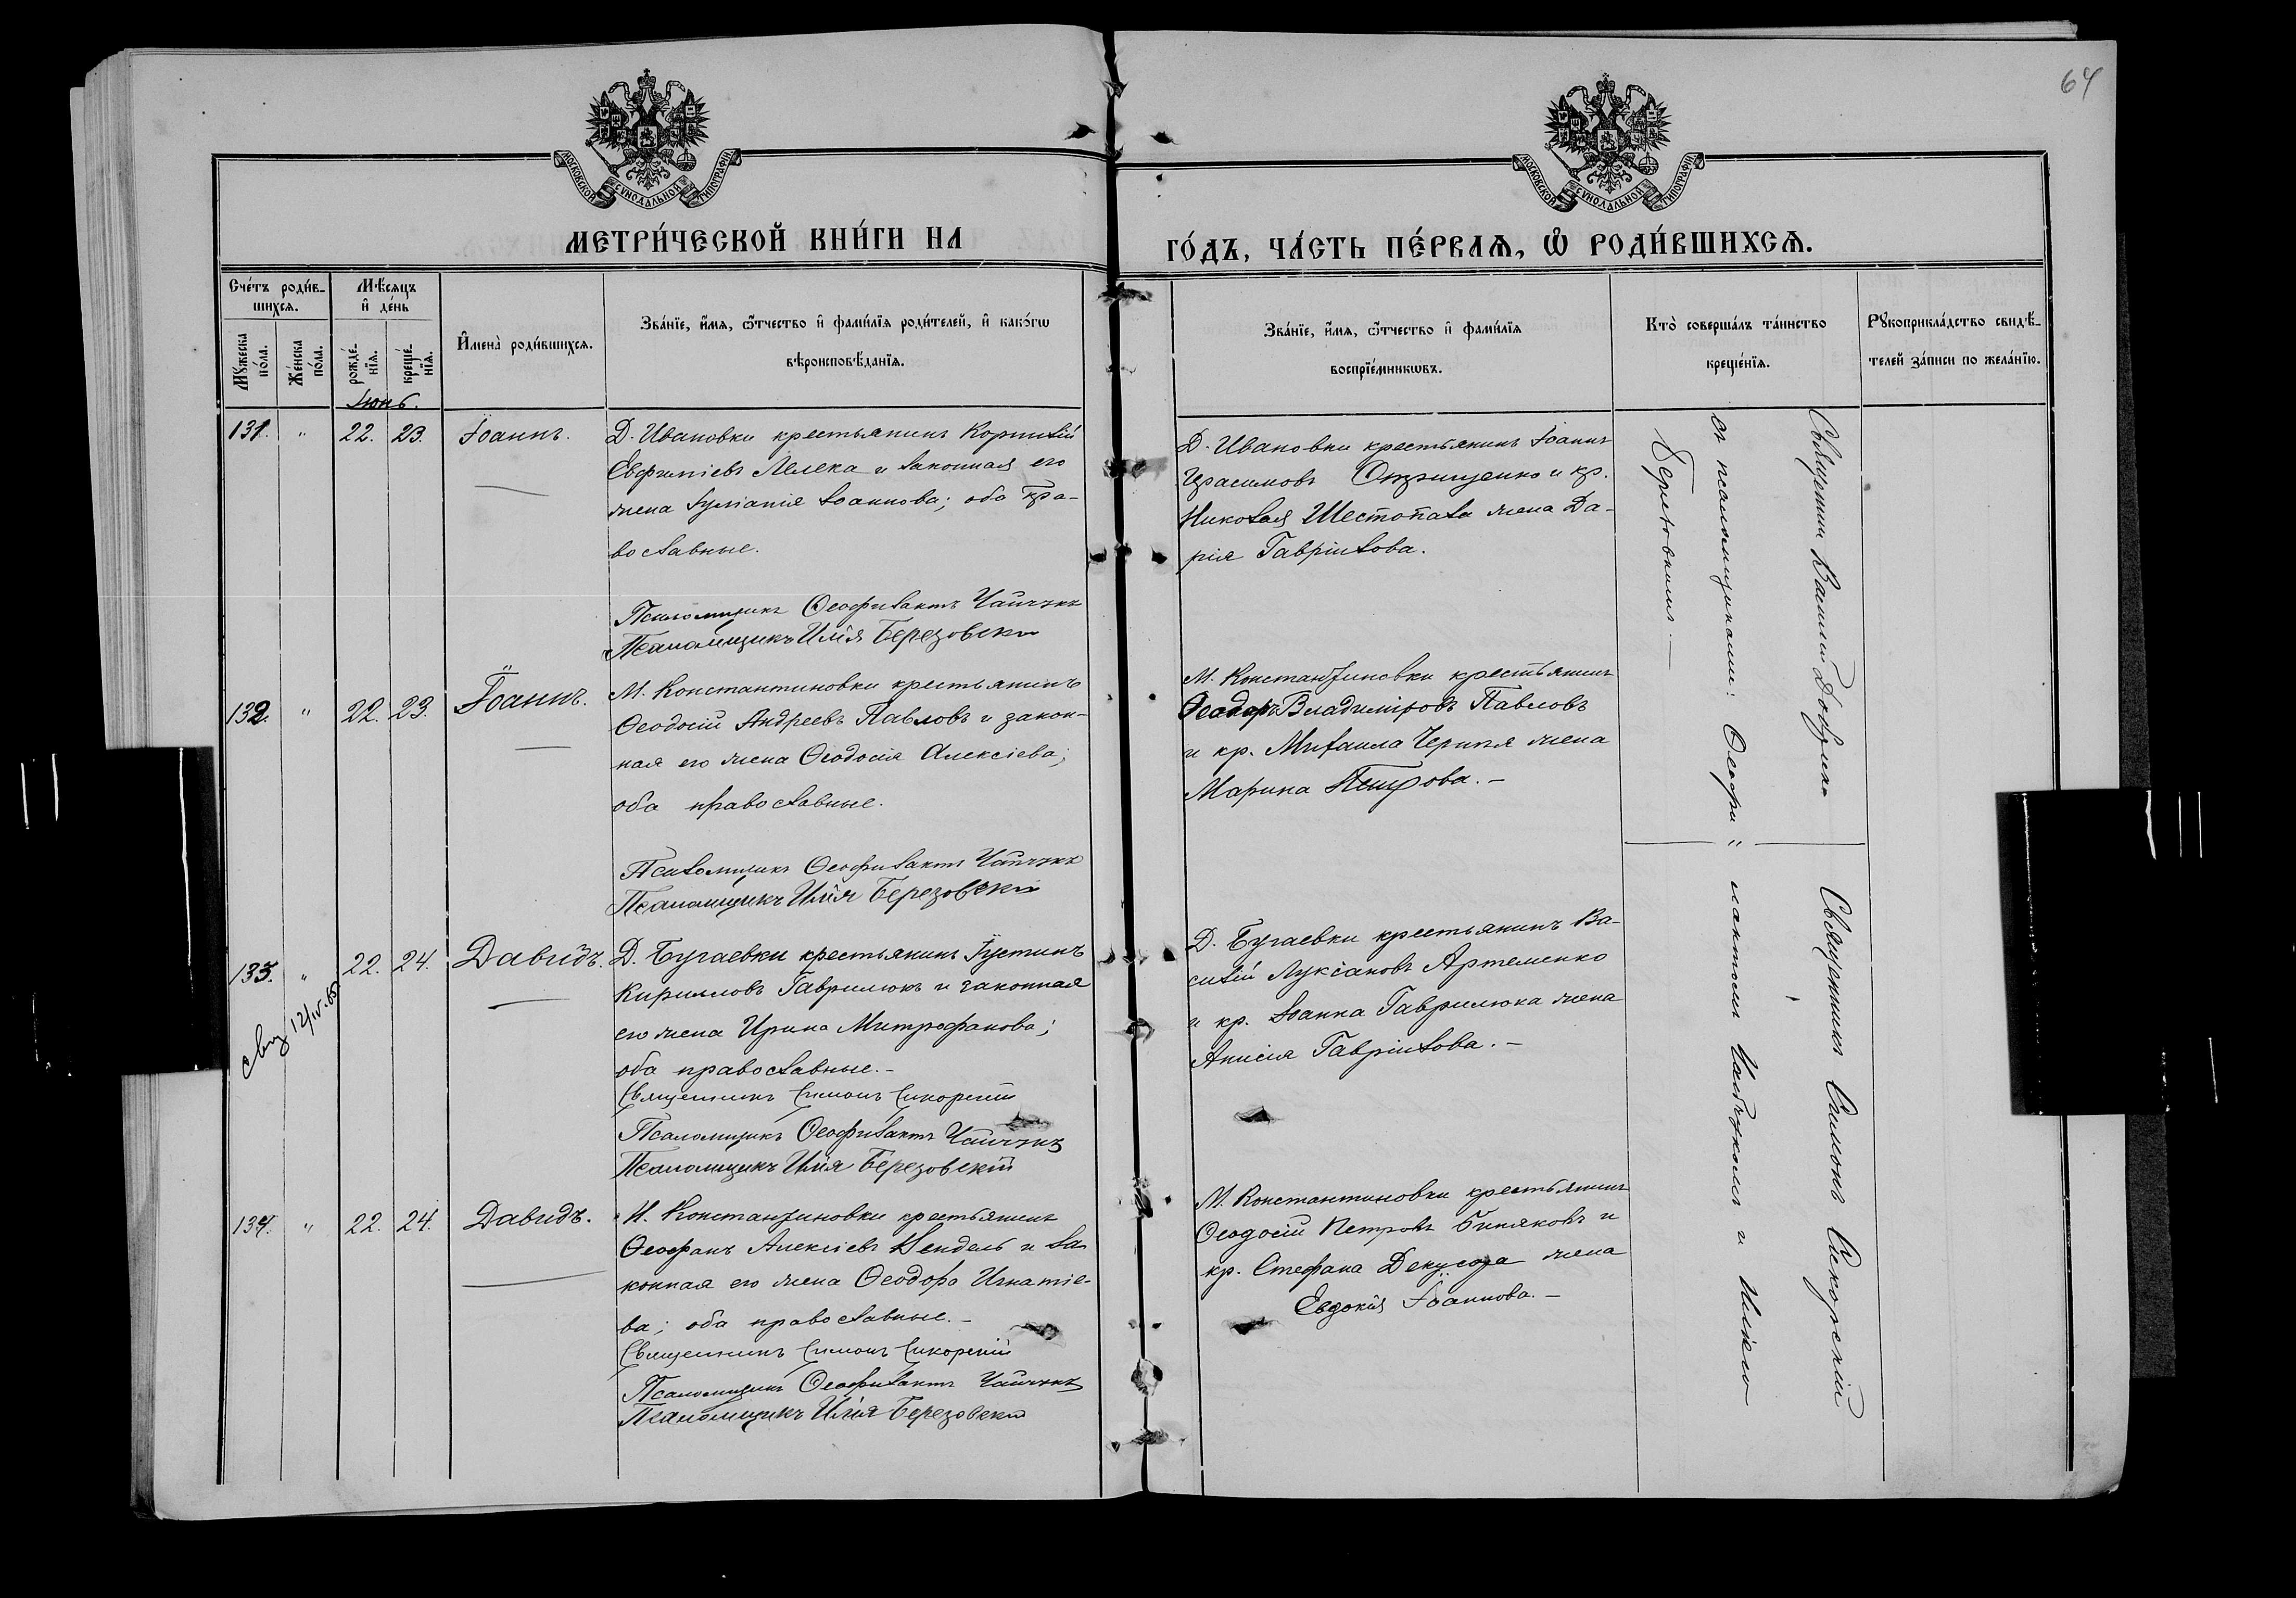 64
МОСКОВСКОЙ СѴНОДАЛЬНОЙ ТИПОГРАФІИ.
МОСКОВСКОЙ СѴНОДАЛЬНОЙ ТИПОГРАФІИ.
МЕТРИ́ЧЕСКОЙ КНИ́ГИ НА
ГО́ДЪ, ЧА́СТЬ ПЕ́РВАѦ, Ѽ РОДИ́ВШИХСѦ.
Сче́тъ роди́в-
шихсѧ.
Мꙋжеска
по́ла.
Же́нска
по́ла.
Мѣ́сяцъ
и҆ де́нь
рожде́-
нїѧ.
креще́-
нїѧ.
И҆мена̀ роди́вшихсѧ.
Зва́нїе, и҆́мѧ, ѻ҆́тчество и҆ фами́лїѧ роди́телей, и҆ како́гѡ
вѣроисповѣ́данїѧ.
Зва́нїе, и҆́мѧ, ѻ҆́тчество и҆ фами́лїѧ
воспрїе́мникѡвъ.
Кто̀ соверша́лъ та́инство
креще́нїѧ.
Рꙋкоприкла́дство свидѣ́-
телей за́писи по жела́нїю.
Іюнь.
131. " 22. 23. Іоаннъ.
Д. Ивановки крестьянинъ Корнилій
Евфиміевъ Лелека и законная его
жена Іуліанія Іоаннова; оба пра-
вославные.
Псаломщикъ Ѳеофилактъ Чайчукъ
Псаломщикъ Илія Березовскій
Д. Ивановки крестьянинъ Іоаннъ
Герасимовъ Онищенко и кр.
Николая Шестопала жена Да-
рія Гавріилова.
132. " 22. 23. Іоаннъ.
М. Константиновки крестьянинъ
Ѳеодосій Андреевъ Павловъ и закон-
ная его жена Ѳеодосія Алексіева;
оба православные.
Псаломщикъ Ѳеофилактъ Чайчукъ
Псаломщикъ Илія Березовскій
М. Константиновки крестьянинъ
Ѳеодоръ Владиміровъ Павловъ
и кр. Михаила Черныя жена
Марина Петрова. –
133. " 22. 24. Давидъ.
12/IV-65
Д. Бугаевки крестьянинъ Іустинъ
Кирилловъ Гаврилюкъ и законная
его жена Ирина Митрофанова;
оба православные. –
Священникъ Симонъ Сикорскій
Псаломщикъ Ѳеофилактъ Чайчукъ
Псаломщикъ Илія Березовскій
Д. Бугаевки крестьянинъ Ва-
силій Лукіановъ Артеменко
и кр. Іоанна Гаврилюка жена
Анисія Гавріилова. –
134. " 22. 24. Давидъ.
М. Константиновки крестьянинъ
Ѳеофанъ Алексіевъ Кендель и за
конная его жена Ѳеодора Игнатіе-
ва; оба православные. –
Священникъ Симонъ Сикорскій
Псаломщикъ Ѳеофилактъ Чайчукъ
Псаломщикъ Илія Березовскій
М. Константиновки крестьянинъ
Ѳеодосій Петровъ Биняковъ и
кр. Стефана жена
Евдокія Іоаннова. –
Священникъ Василій
Священникъ Симонъ Сикорскій
съ псаломщиками: Ѳеофи " лактомъ Чайчукомъ и Иліею
Березовскимъ. –